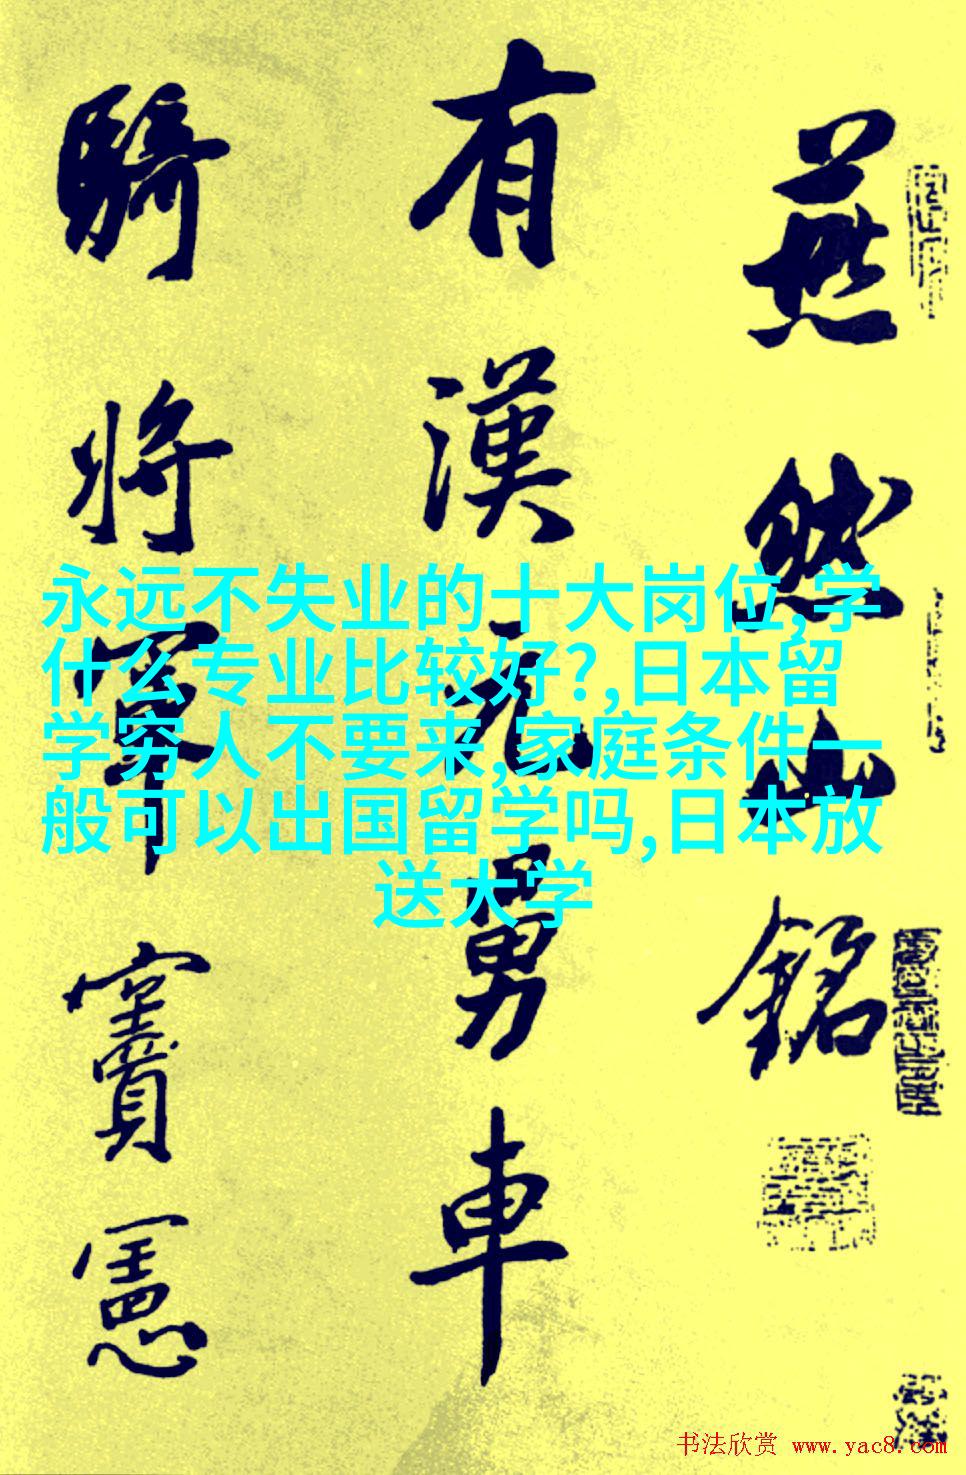 燕然山銘
有漢元舅車
騎將軍竇憲
永远不失业的十大岗位,学
什么专业比较好?,日本留
学穷人不要来,家庭条件一
般可以出国留学吗,日本放
送大学
书法欣赏 www.yac8.com